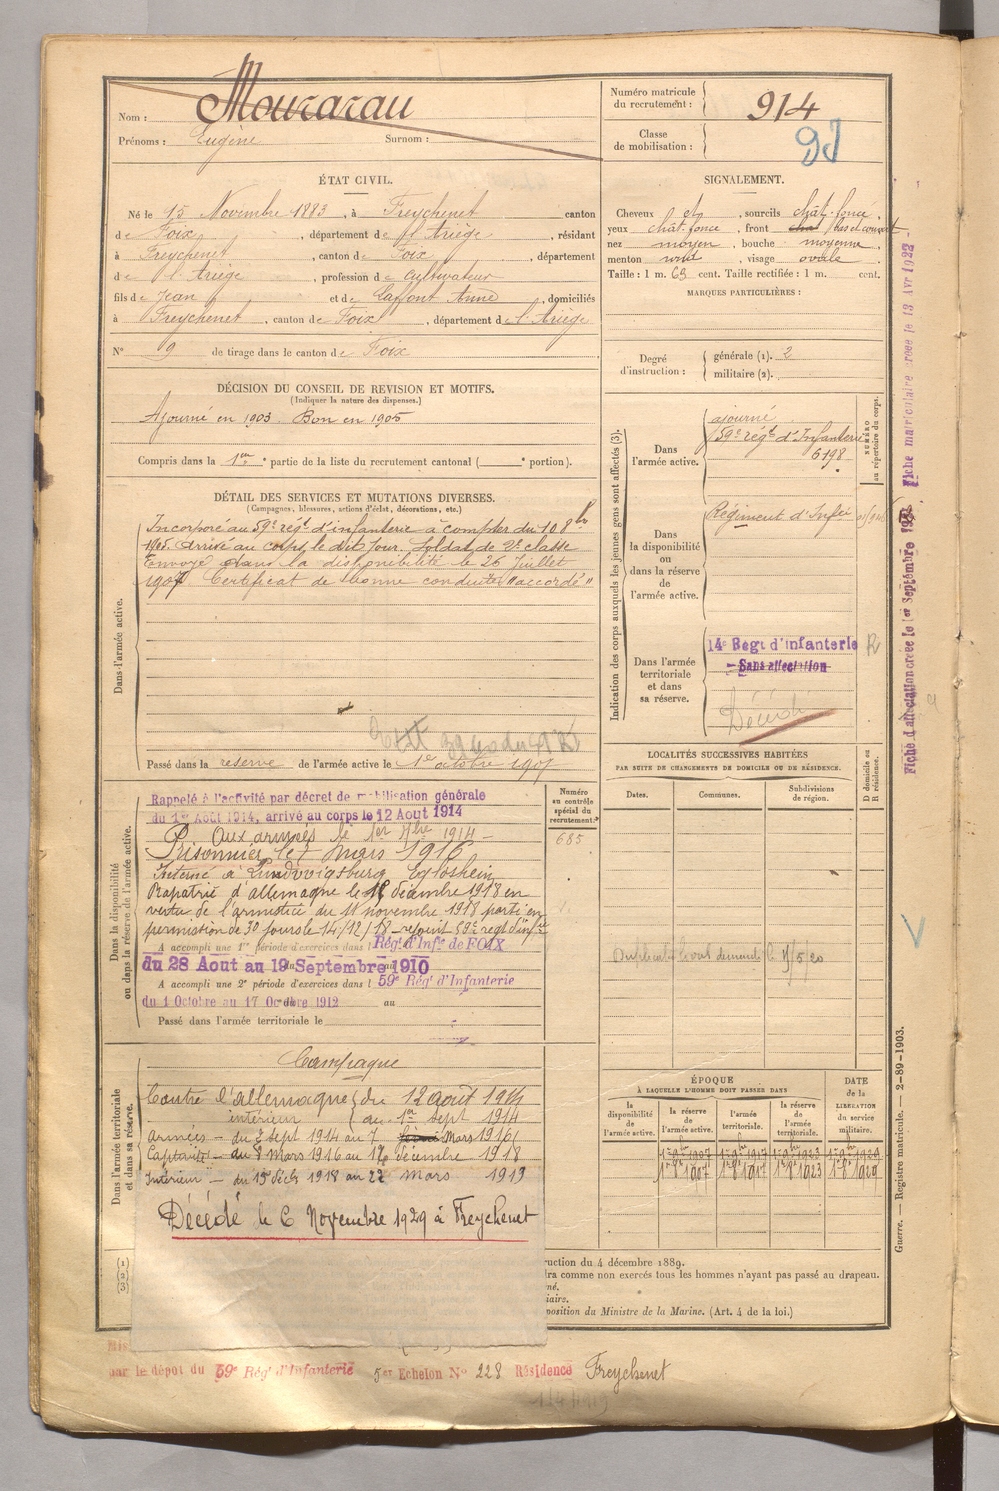 Nom : Mourarau
Prénoms : Eugène Surnom :
Numéro matricule du recrutement : 914
Classe de mobilisation :
ÉTAT CIVIL.
Né le 15 Novembre 1883, à Freychenet canton
de Foix, département de l'Ariège, résidant
à Freychenet, canton de Foix, département
de l'Ariège, profession de Cultivateur
fils de Jean et de Laffont Anne, domiciliés
à Freychenet, canton de Foix, département de l'Ariège
N° 9 de tirage dans le canton de Foix
SIGNALEMENT.
Cheveux et, sourcils chât. foncé,
yeux chât. foncé, front
nez moyen, bouche moyenne,
menton rond, visage ovale
Taille : 1 m. 63 cent. Taille rectifiée : 1 m. cent.
MARQUES PARTICULIÈRES :
Degré d'instruction : générale (1). 2
militaire (2).
DÉCISION DU CONSEIL DE REVISION ET MOTIFS.
(Indiquer la nature des dispenses.)
Ajourné en 1903. Bon en 1905
Compris dans la 1re partie de la liste du recrutement cantonal ( portion).
DÉTAIL DES SERVICES ET MUTATIONS DIVERSES.
(Campagnes, blessures, actions d'éclat, décorations, etc.)
Dans l'armée active.
Incorporé au 59e régt d'infanterie à compter du 10 8bre
1905. Arrivé au corps le dit jour. Soldat de 2e classe
Envoyé dans la disponibilité le 26 Juillet
1907 Certificat de bonne conduite "accordé"
Passé dans la réserve de l'armée active le 1er octobre 1907
Indication des corps auxquels les jeunes gens sont affectés (3).
Dans l'armée active.
ajourné
59e régt d'Infanterie
6198
NUMÉRO au répertoire du corps.
Dans la disponibilité ou dans la réserve de l'armée active.
Régiment d'Infie
Dans l'armée territoriale et dans sa réserve.
14e Regt d'infanterie R
Sans affectation
Décédé
LOCALITÉS SUCCESSIVES HABITÉES
PAR SUITE DE CHANGEMENTS DE DOMICILE OU DE RÉSIDENCE.
D domicile ou R résidence.
Dates. Communes. Subdivisions de région.
Dans la disponibilité ou dans la réserve de l'armée active.
Numéro au contrôle spécial du recrutement.
685
Rappelé à l'activité par décret de mobilisation générale
du 1er Août 1914, arrivé au corps le 12 Aout 1914
Aux armées le 1er 7bre 1914
Prisonnier le 7 mars 1916
Interné à Ludwigsburg Eglosheim
Rapatrié d'allemagne le 18 décembre 1918 en
vertu de l'armistice du 11 novembre 1918 parti en
permission de 30 jours le 14/12/18
A accompli une 1re période d'exercices dans l Régt d'Infie de FOIX
du 28 Aout au 19 Septembre 1910
A accompli une 2e période d'exercices dans l 59e Régt d'Infanterie
du 1 Octobre au 17 Octobre 1912 au
Passé dans l'armée territoriale le
Dans l'armée territoriale et dans sa réserve.
Campagne
Contre l'allemagne du 12 août 1914
intérieur au 1er Sept 1914
Armées - du 2 Sept 1914 au 7 Mars 1916
Captivité - du 8 Mars 1916 au décembre 1918
Intérieur - du déc 1918 au 22 mars
Décédé le 6 Novembre 1929 à Freychenet
ÉPOQUE
À LAQUELLE L'HOMME DOIT PASSER DANS
DATE de la LIBÉRATION du service militaire.
la disponibilité de l'armée active. la réserve de l'armée active. l'armée territoriale. la réserve de l'armée territoriale.
1er 8e 1907 1er 8e 1917 1er 8e 1923 1er 8e 1929
(1)
(2)
(3)
ruction du 4 décembre 1889.
dra comme non exercés tous les hommes n'ayant pas passé au drapeau.
né.
iaire.
position du Ministre de la Marine. (Art. 4 de la loi.)
par le dépôt du 59e Régt d'Infanterie 5er Echelon N° 228 Résidence Freychenet
Fiche matriculaire créée le 13 Avr 1922
Fiche d'affectation créée le 1er Septembre
Guerre. — Registre matricule. — 2-89-1903.